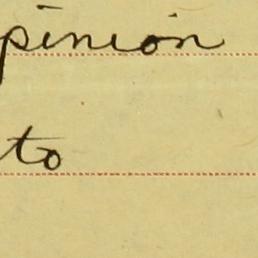 pinion
to